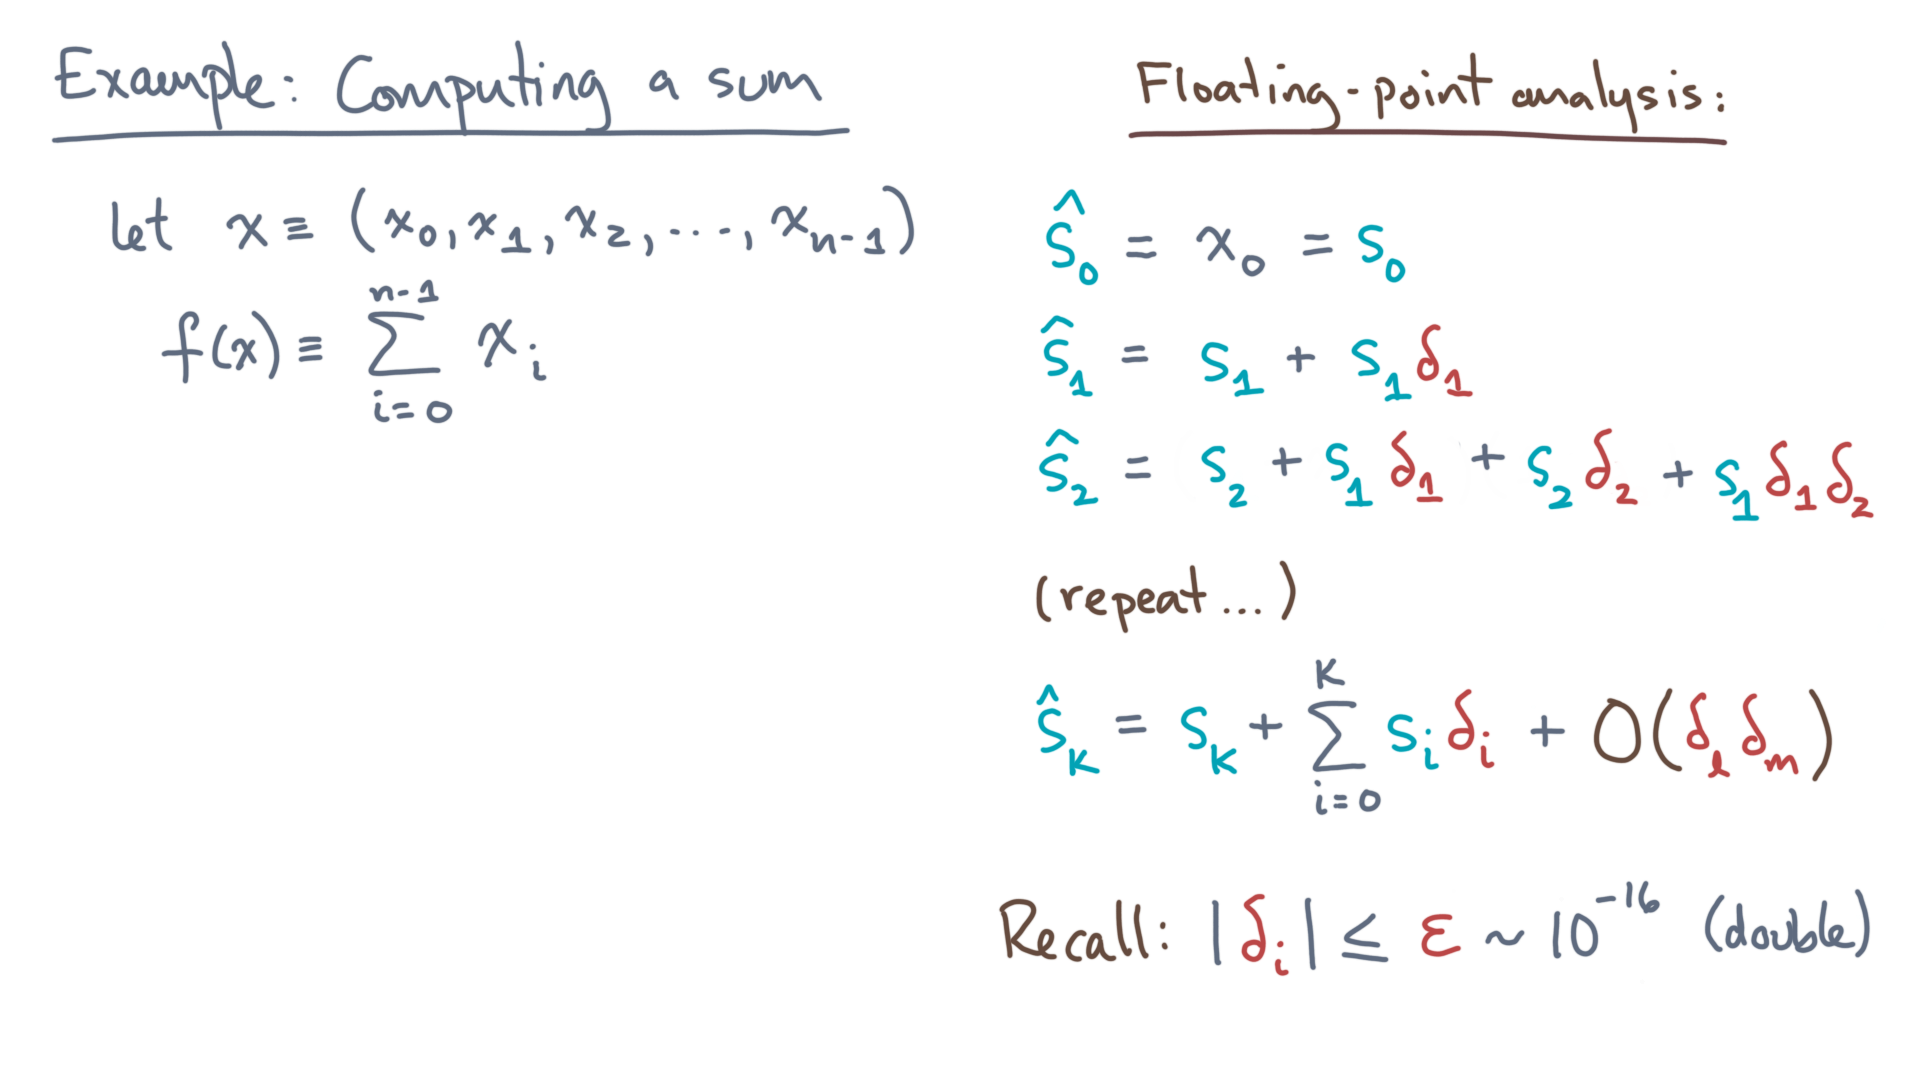 Example: Computing a sum
let x ≡ (x₀, x₁, x₂, ..., xₙ₋₁)
n-1
f(x) ≡ ∑ xᵢ
i=0
Floating-point analysis:
ŝ₀ = x₀ = s₀
ŝ₁ = s₁ + s₁δ₁
ŝ₂ = s₂ + s₁δ₁ + s₂δ₂ + s₁δ₁δ₂
(repeat...)
K
ŝ_K = s_K + ∑ sᵢδᵢ + O(δ_l δ_m)
i=0
Recall: |δᵢ| ≤ ε ~ 10⁻¹⁶ (double)